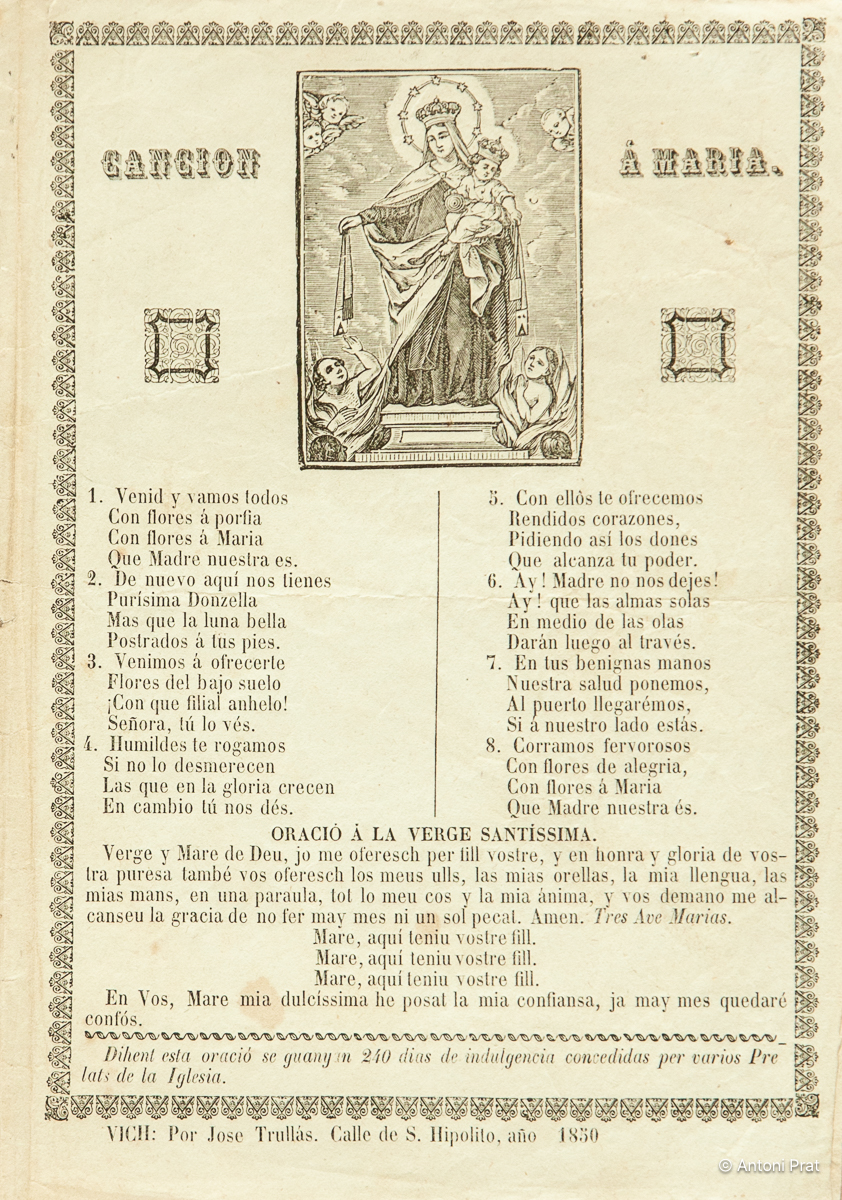 CANCION Á MARIA.
1. Venid y vamos todos
Con flores á porfia
Con flores á Maria
Que Madre nuestra es.
2. De nuevo aquí nos tienes
Purísima Donzella
Mas que la luna bella
Postrados á tus pies.
3. Venimos á ofrecerte
Flores del bajo suelo
¡Con que filial anhelo!
Señora, tú lo vés.
4. Humildes te rogamos
Si no lo desmerecen
Las que en la gloria crecen
En cambio tú nos dés.
5. Con ellòs te ofrecemos
Rendidos corazones,
Pidiendo así los dones
Que alcanza tu poder.
6. Ay! Madre no nos dejes!
Ay! que las almas solas
En medio de las olas
Darán luego al través.
7. En tus benignas manos
Nuestra salud ponemos,
Al puerto llegarémos,
Si á nuestro lado estás.
8. Corramos fervorosos
Con flores de alegria,
Con flores á Maria
Que Madre nuestra és.
ORACIÓ Á LA VERGE SANTÍSSIMA.
Verge y Mare de Deu, jo me oferesch per fill vostre, y en honra y gloria de vos-
tra puresa també vos oferesch los meus ulls, las mias orellas, la mia llengua, las
mias mans, en una paraula, tot lo meu cos y la mia ánima, y vos demano me al-
canseu la gracia de no fer may mes ni un sol pecat. Amen. Tres Ave Marias.
Mare, aquí teniu vostre fill.
Mare, aquí teniu vostre fill.
Mare, aquí teniu vostre fill.
En Vos, Mare mia dulcíssima he posat la mia confiansa, ja may mes quedaré
confós.
Dihent esta oració se guanyan 240 dias de indulgencia concedidas per varios Pre
lats de la Iglesia.
VICH: Por Jose Trullás. Calle de S. Hipolito, año 1850
© Antoni Prat